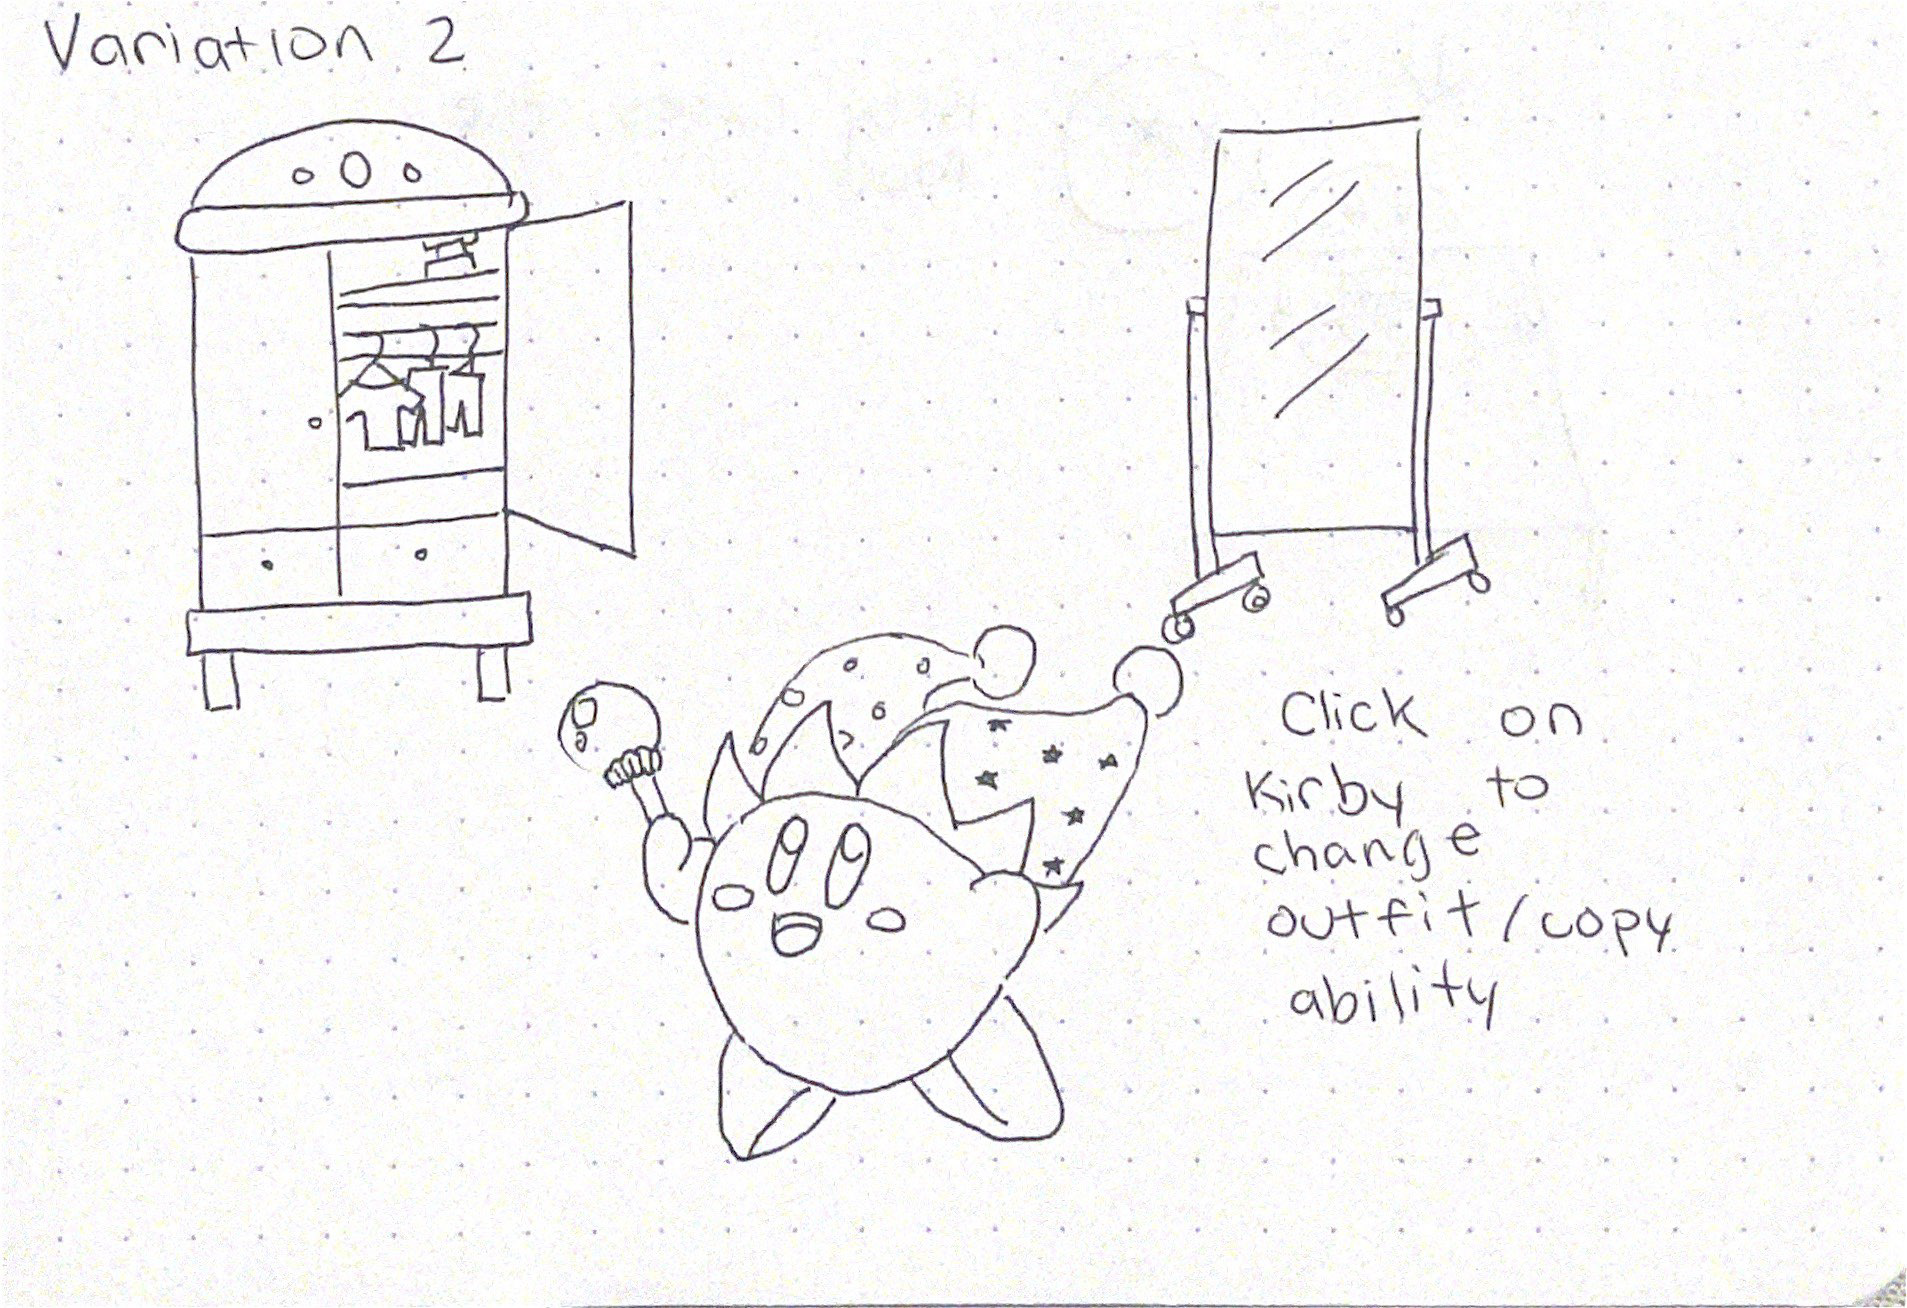 Variation 2
Click on
Kirby to
change
outfit/copy
ability